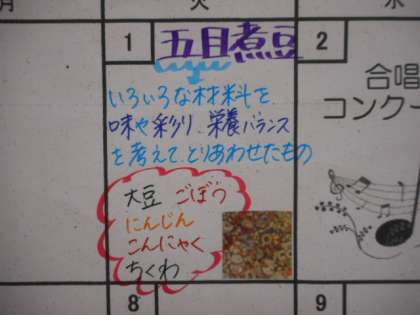 月 火 水
1 五目煮豆 2
いろいろな材料を
味や彩り、栄養バランス
を考えて、とりあわせたもの
大豆 ごぼう
にんじん
こんにゃく
ちくわ
合唱
コンク
8 9